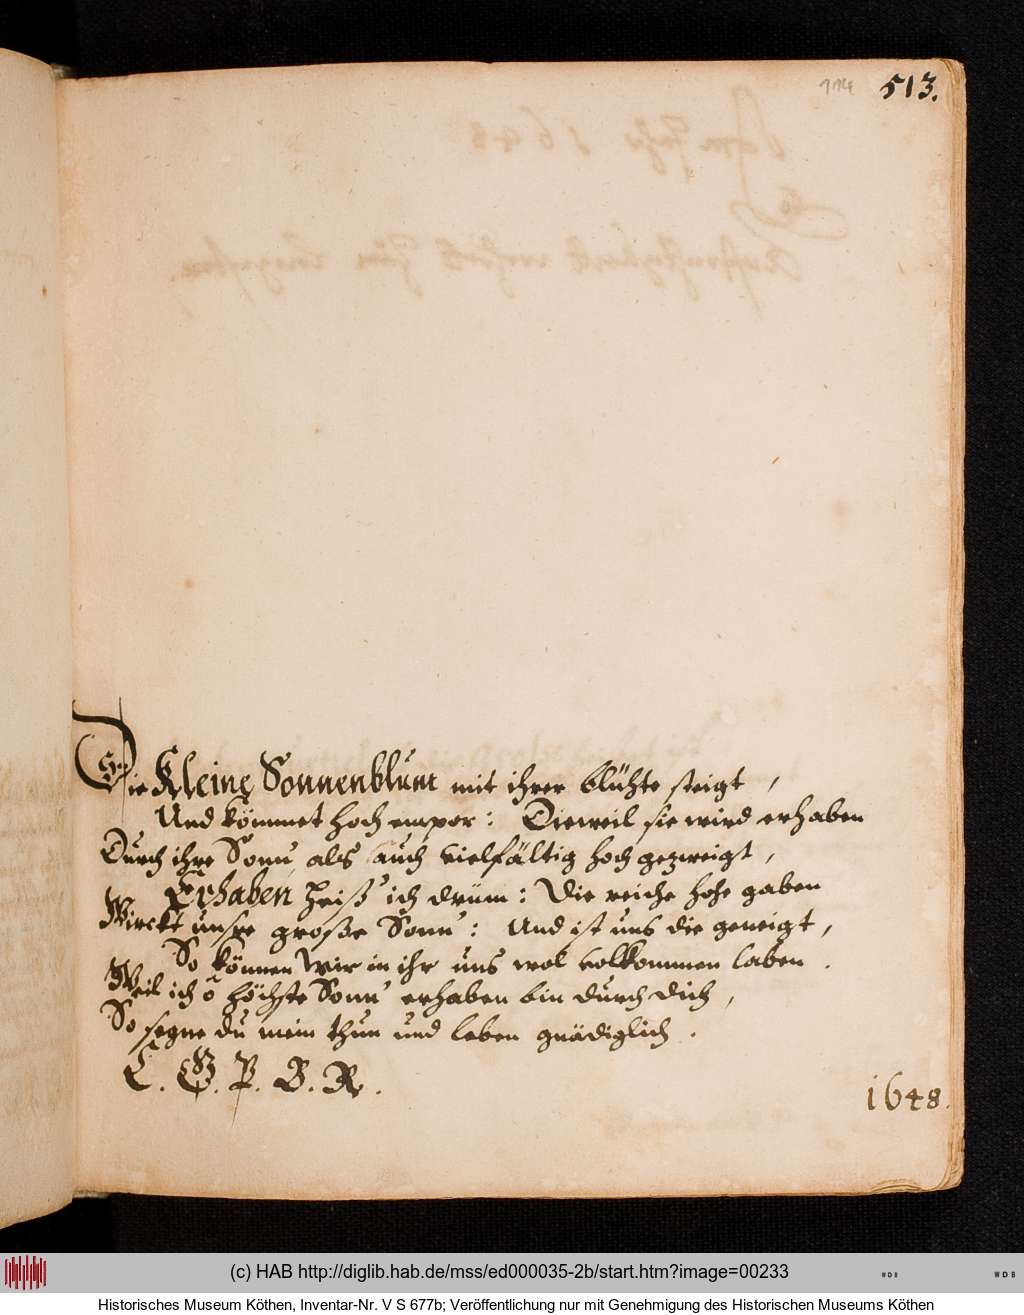 513.
Die Kleine Sonnenblum mit ihrer blühte steigt,
Und kömmet hoch empor: Dieweil sie wird erhaben
Durch ihre Sonn, als auch vielfältig hoch gezweigt,
Erhaben heiß' ich drüm: Die reiche hohe gaben
Wirckt unsre große Sonn': Und ist uns die geneigt,
So können wir in ihr uns wol vollkommen laben.
Weil ich ô höchste Sonn' erhaben bin durch dich,
So segne du mein thun und leben gnädiglich.
C. G. P. B. R.
1648.
(c) HAB http://diglib.hab.de/mss/ed000035-2b/start.htm?image=00233
WDB
WDB
Historisches Museum Köthen, Inventar-Nr. V S 677b; Veröffentlichung nur mit Genehmigung des Historischen Museums Köthen